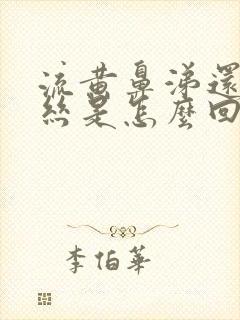 流黄鼻涕還
絲是怎麼回
李伯華